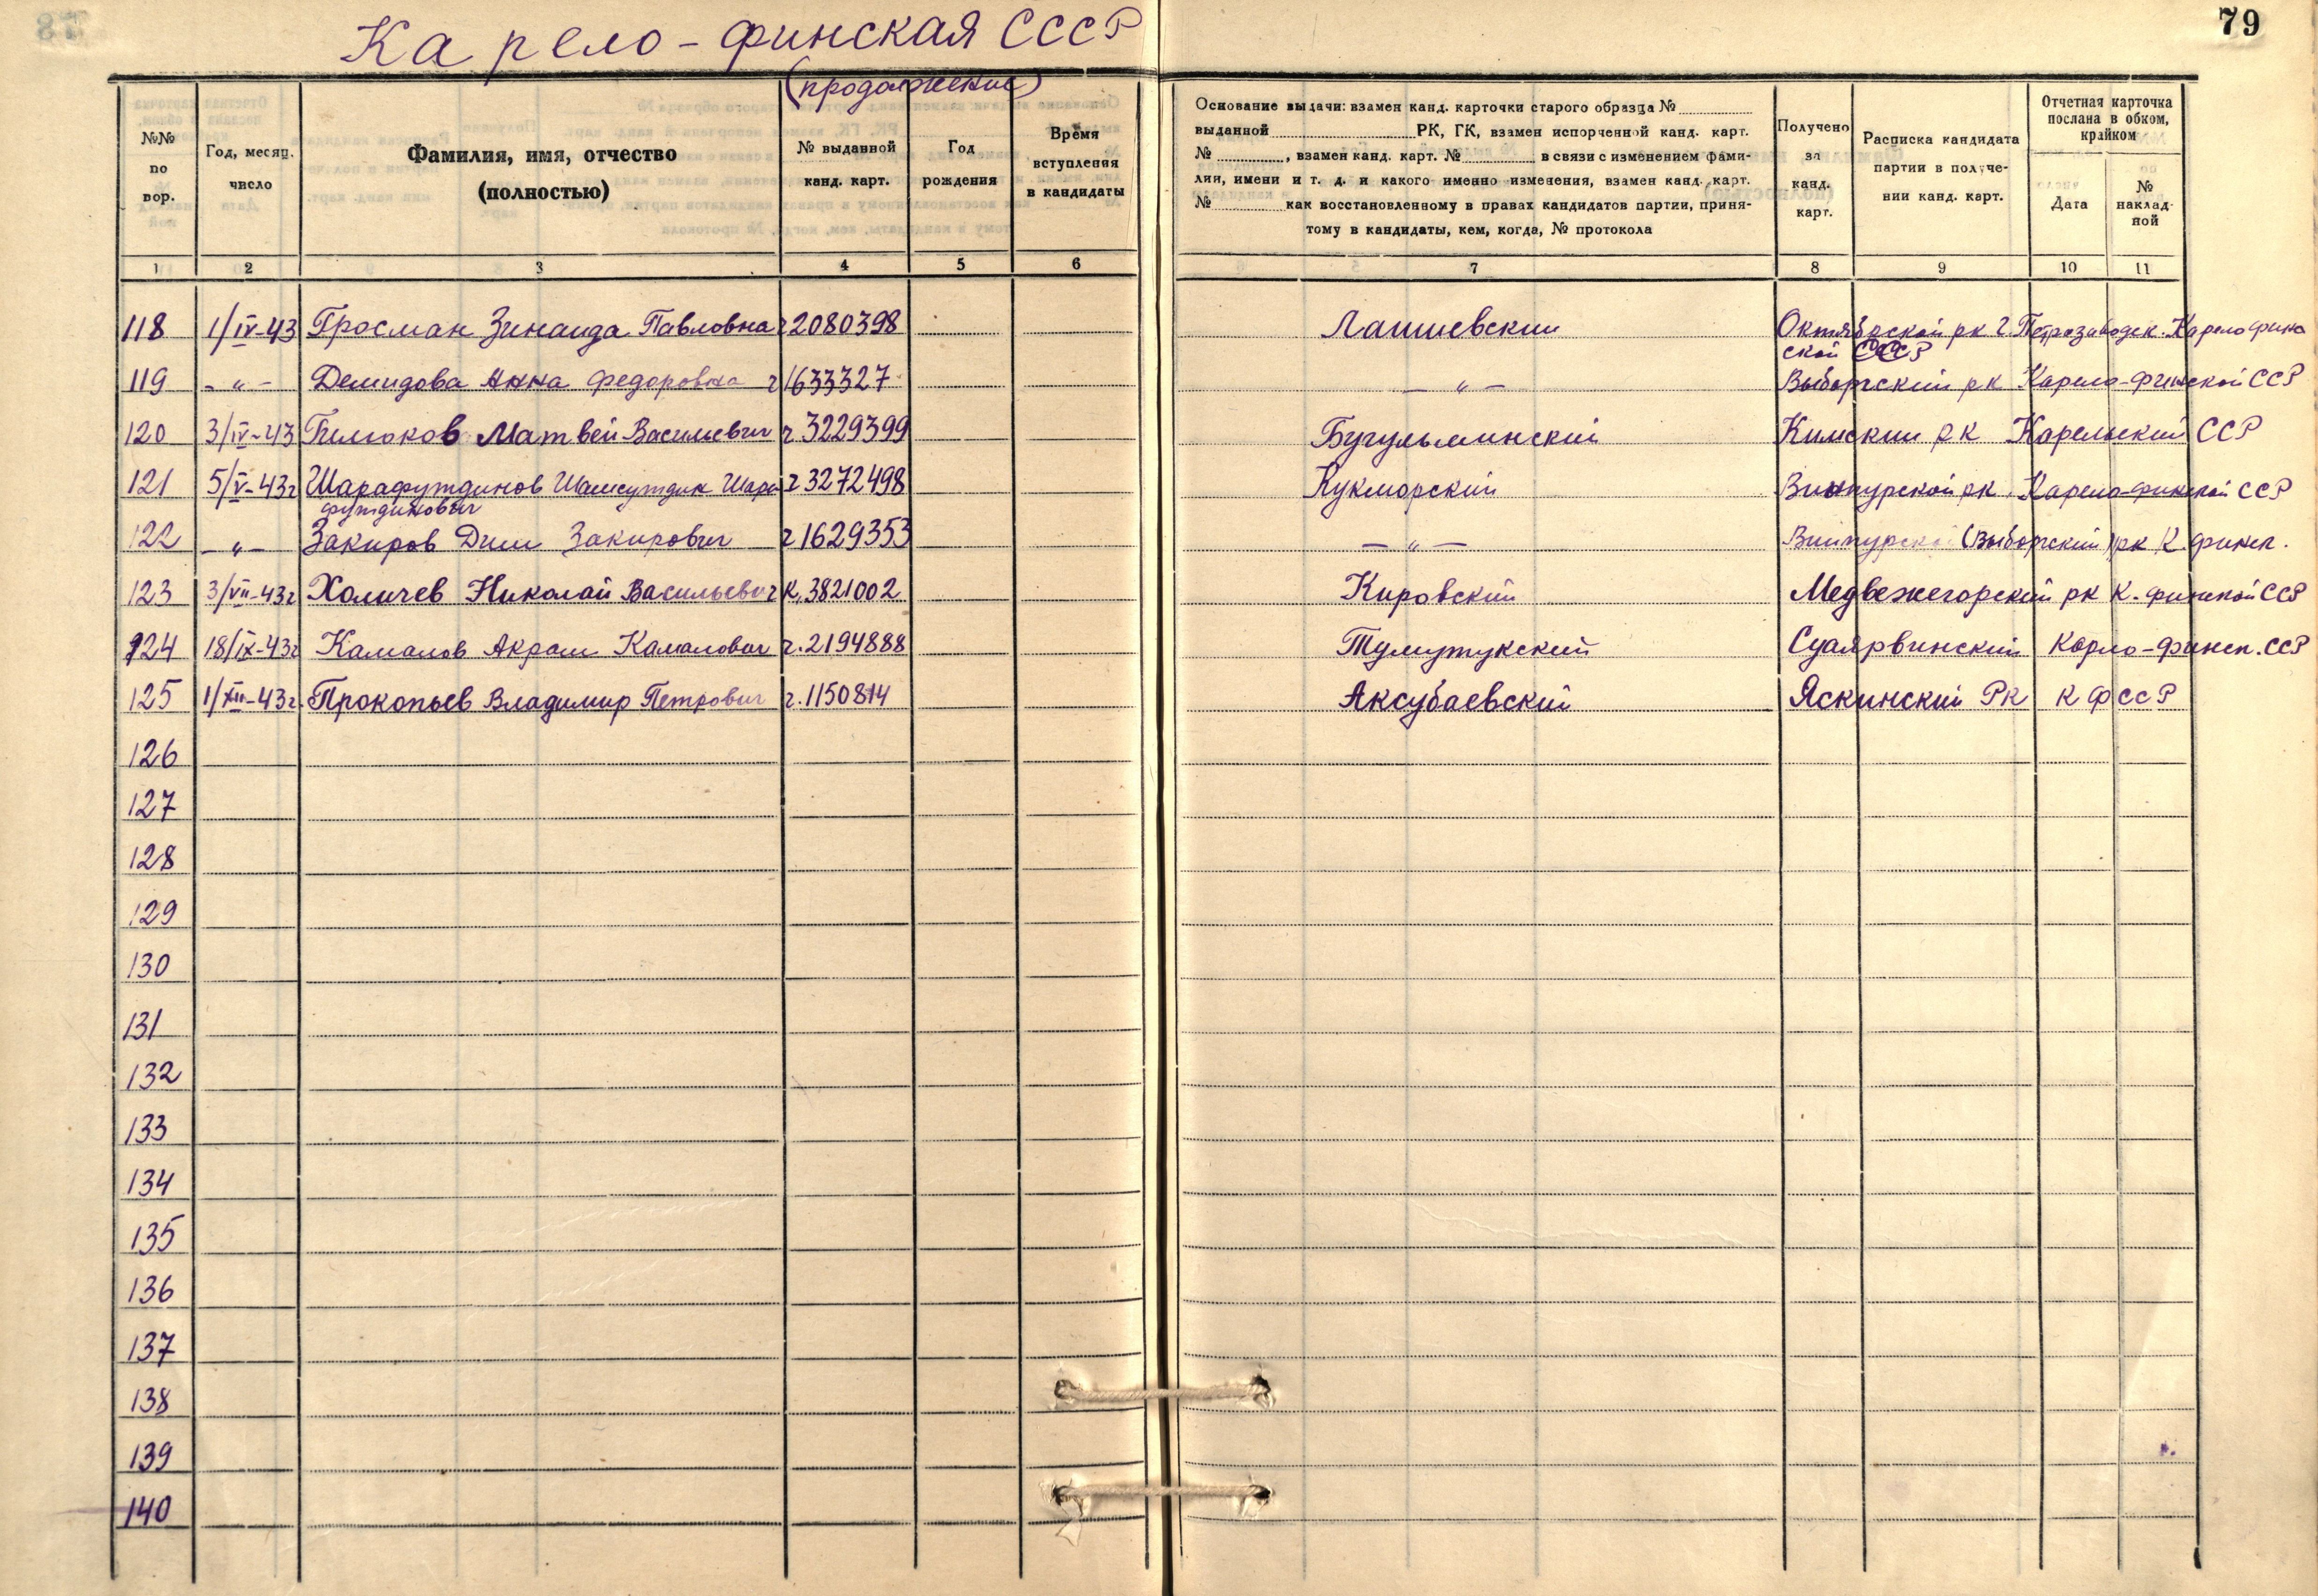 Карело-финская СССР
79
(продолжение)
№№ по пор.
Год, месяц, число
Фамилия, имя, отчество (полностью)
№ выданной канд. карт.
Год рождения
Время вступления в кандидаты
Основание выдачи: взамен канд. карточки старого образца №
выданной РК, ГК, взамен испорченной канд. карт.
№ , взамен канд. карт. № в связи с изменением фами-
лии, имени и т. д. и какого именно изменения, взамен канд. карт.
№ как восстановленному в правах кандидатов партии, приня-
тому в кандидаты, кем, когда, № протокола
Получено за канд. карт.
Расписка кандидата партии в получе- нии канд. карт.
Отчетная карточка послана в обком, крайком
Дата
№ наклад- ной
1 2 3 4 5 6 7 8 9 10 11
118 1/IV-43 Гросман Зинаида Павловна ч 2080398 Лаишевский Октябрской рк г. Петрозаводск. Карело фин
ской СССР
119 -"- Демидова Анна Федоровна ч 1633327 -"- Выборгский рк Карело-Финской ССР
120 3/IV-43 Матвей Васильевич ч. 3229399 Бугульминский РК Карельский ССР
121 5/V-43г Шарафутдинов Шамсутдин Шара ч 3272498 Кукморский рк. Карело-финской ССР
футдинович
122 -"- Закиров Дим Закирович ч 1629353 -"- (Выборгский) рк К. финск.
123 3/VII-43г Холичев Николай Васильевич К. 3821002 Кировский Медвежегорский рк К. финской ССР
124 18/IX-43г Камалов Акрам Камалович ч. 2194888 Тумутукский Суаярвинский Карло-финск. ССР
125 1/XII-43г. Прокопьев Владимир Петрович ч. 1150814 Аксубаевский Яскинский РК К Ф ССР
126
127
128
129
130
131
132
133
134
135
136
137
138
139
140